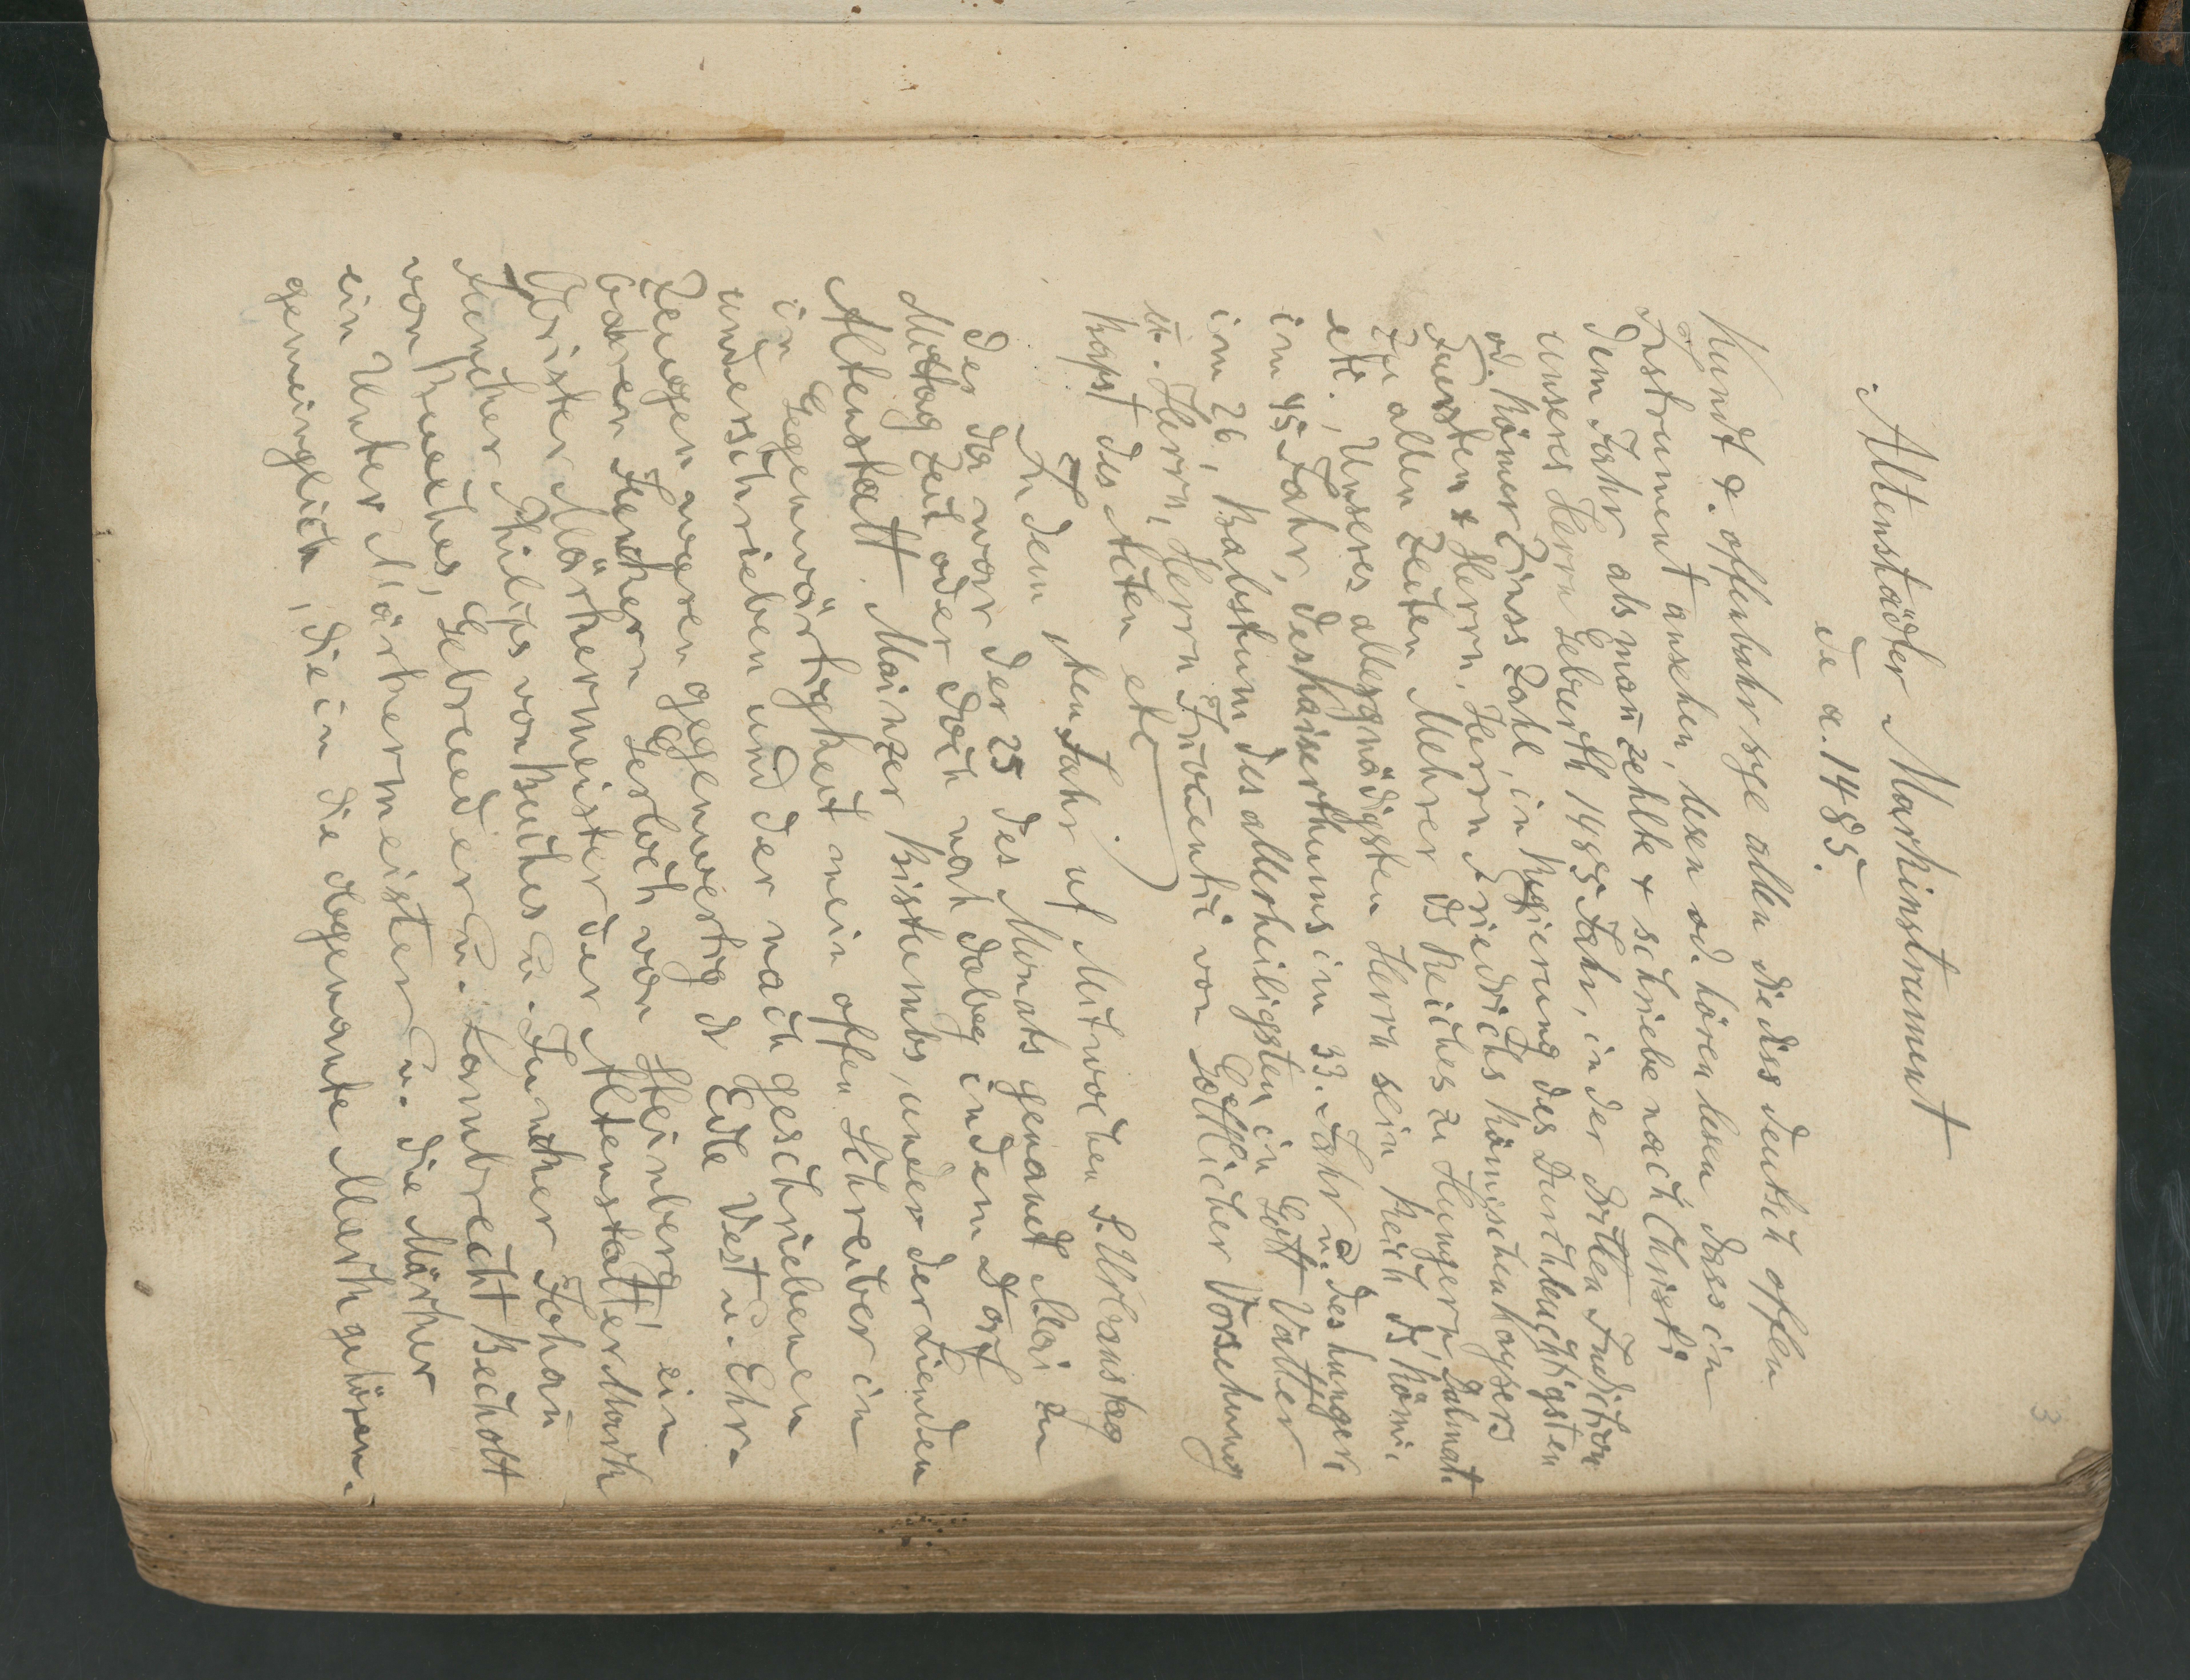 3
Altenstädter Markinstrument
de a. 1485.
Kundt & offenbahr sye allen die diss deutsch offen
Instrument ansehen, lesen od. hören lesen dass in
dem Jahr als man zehlte & schriebe nach Christi
unseres Herrn Geburth 1485 Jahr, in der dritten Indiction
od. Römer Zinss Zahl, in Regierung des Durchleuchtigsten
Fuersten & Herrn. Herrn Friedrichs Römischen Kaysers
zu allen Zeiten Mehrer ds Reiches zu Hungern, Dalmat.
etc., Unseres allergnädigsten Herrn sein Reich ds Römi.
im 45 Jahr, des Kaiserthums im 33. Jahr u. des hungeri
im 26, Babstthum des allerheiligsten in Gott Vatter
u. Herrn, Herrn Innocentii von Göttlicher Vorsehung
Papst des Alten etc
In dem sten Jahr uf Mitwochen S. Urbanstag
der da war der 25 des Monats genandt Mai zu
Mittag Zeit oder doch nah dabey in dem Dorf
Altenstatt Mainzer Bisthumbs, under der Linden
in Gegenwärtigkeit mein offen Schreiber in
underschrieben und der nach geschriebenen
Zeugen waren gegenwertig d Edle Vest u. Ehr-
baren Junckern Gerlach von Steinberg, ein
Obrister Märkermeister der Altenstätter Mark
Juncker Philips von Buches u. Juncker Johan
von Bueches, Gebrueder u. Lambrecht Becholt
ein Unter Märkermeister u. die Märker
gemeinglich, die in die obgenante Merk gehören.